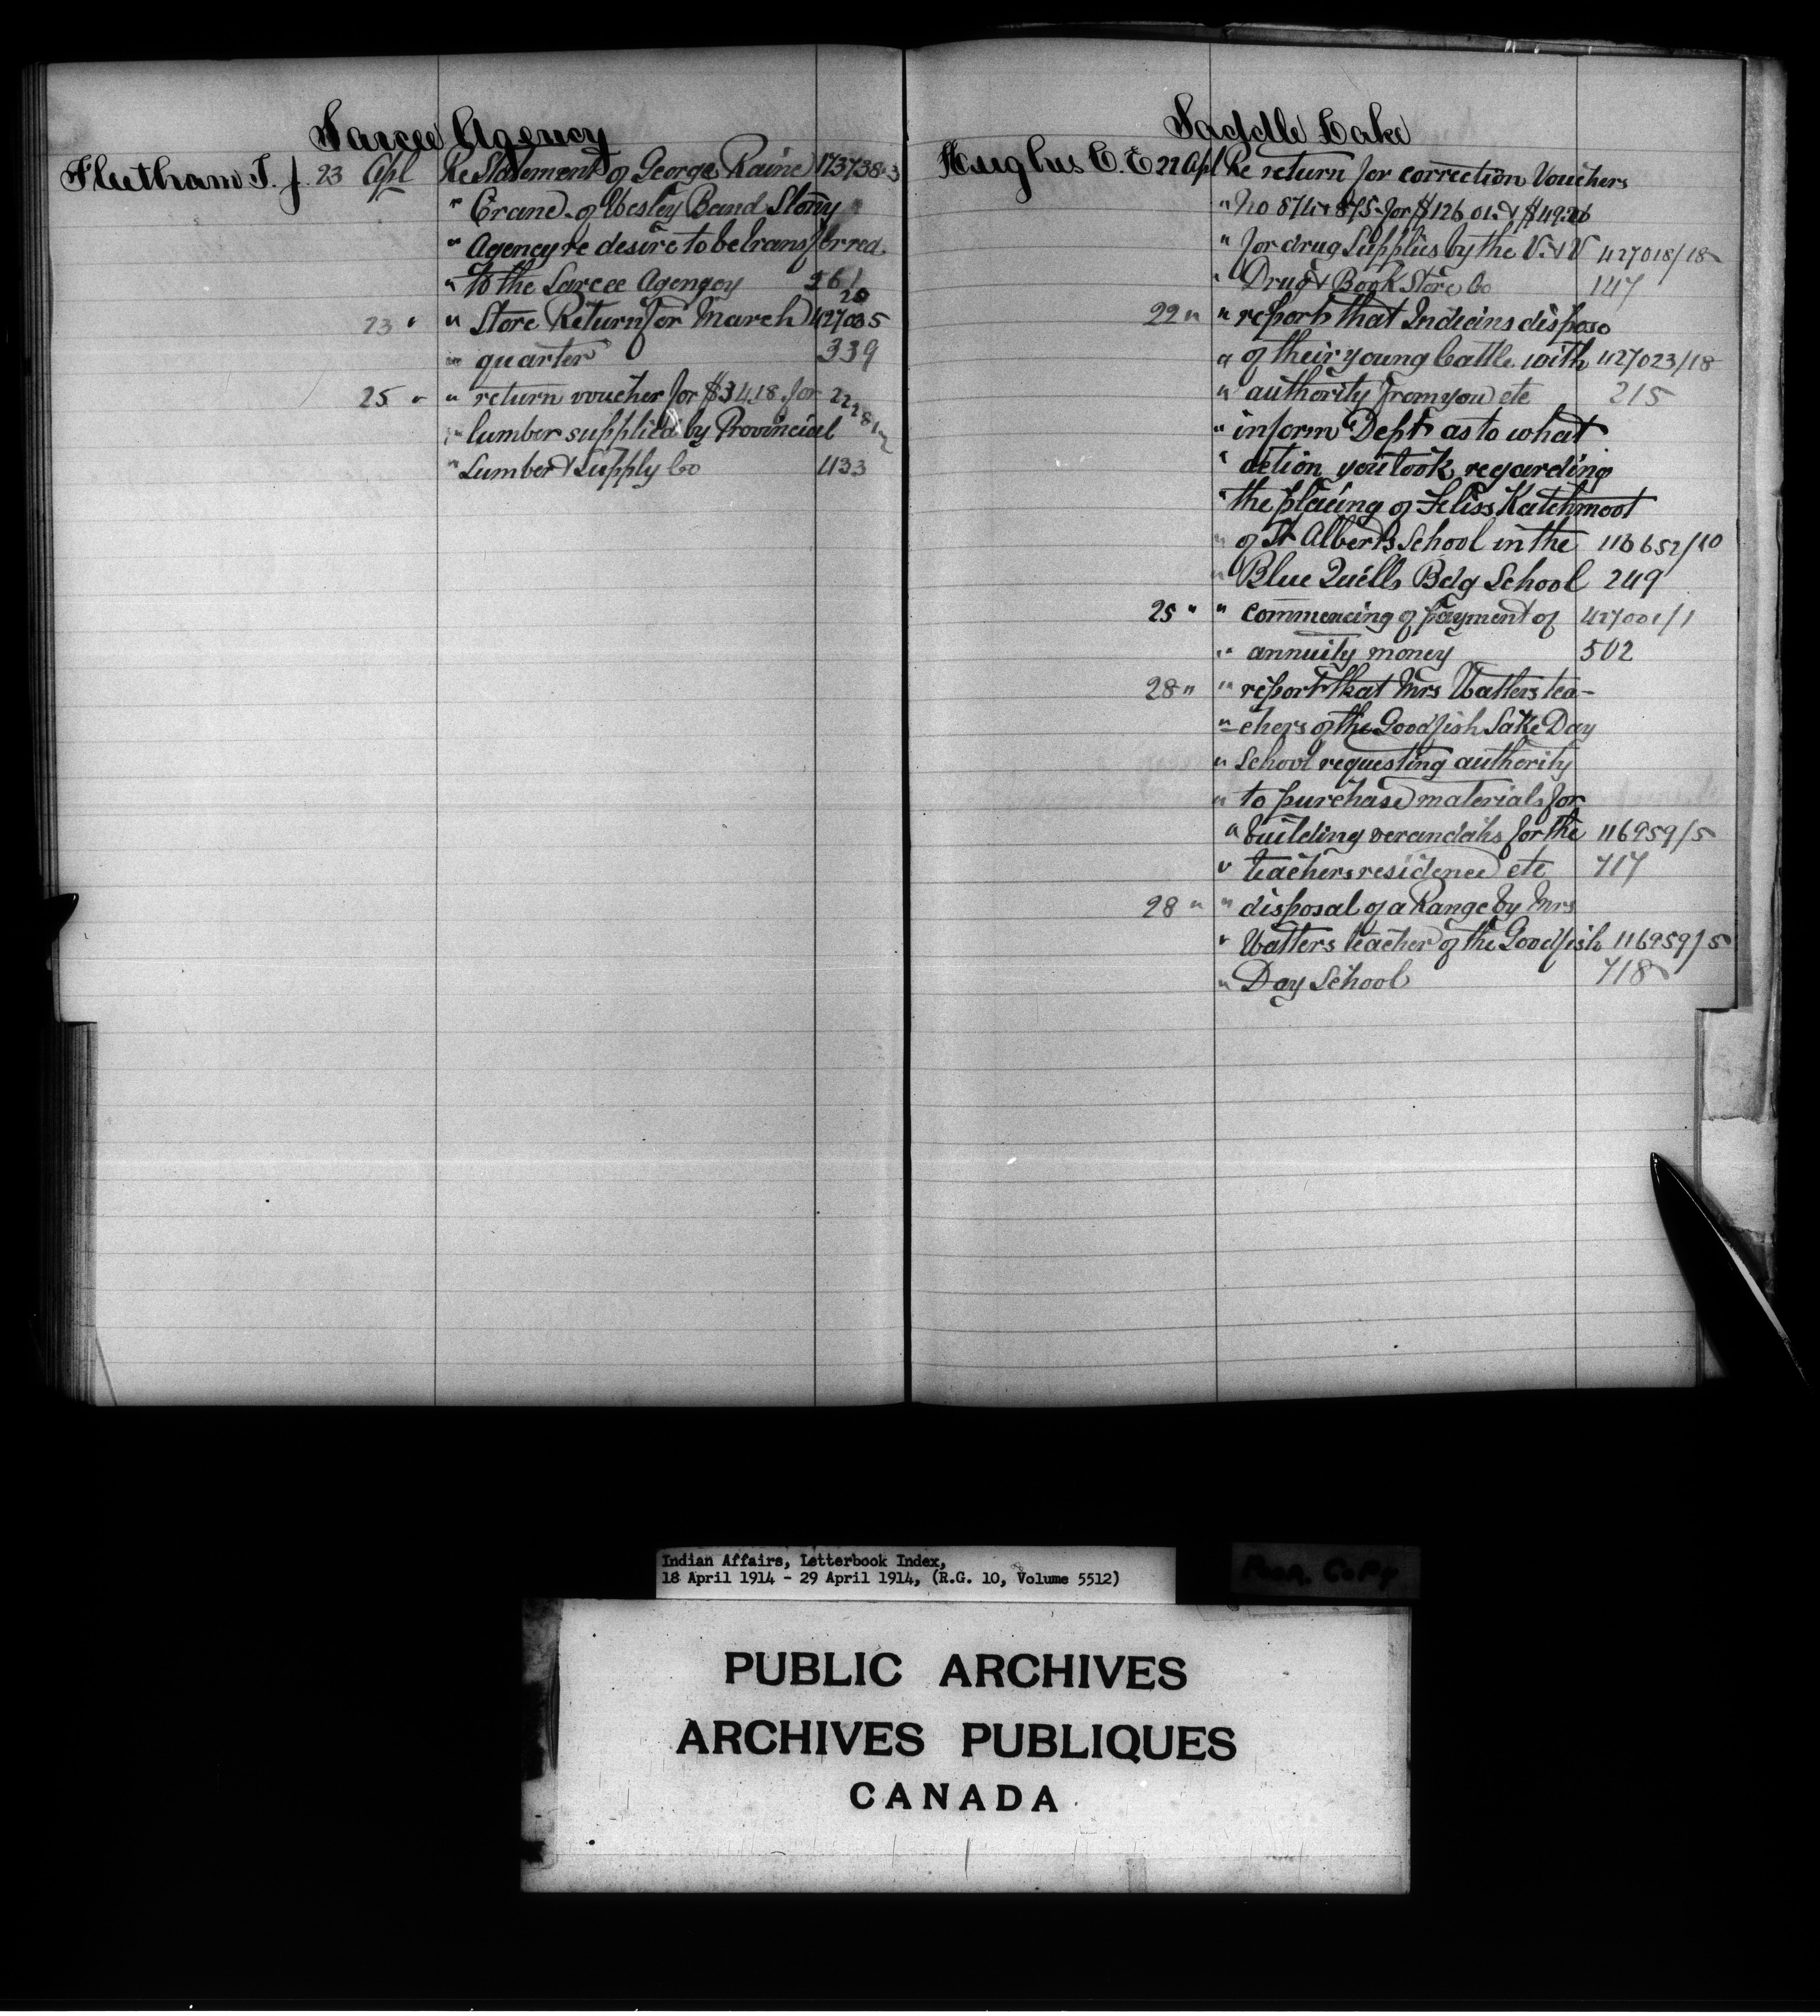 Sarcee Agency
Fleetham T. J. 23 Apl Re Statement of George Raine 173738-3
" Crane of Wesley Band Stony
" Agency re desire to be transferred
" to the Sarcee Agengoy 261
23 " " Store Return for March 427035
20
" quarter 339
25 " " return voucher for $34.18 for
" lumber supplied by Provincial
" Lumber & Supply Co 433
Saddle Lake
Hughes C. E 22 Apl Re return for correction Vouchers
" No 874 & 875 for $126 01 & $49.26
" for drug Supplies by the V. & V 427018/18
" Drug & Book Store Co 147
22 " " report that Indians dispose
" of their young Cattle with 427023/18
" authority from you etc 215
" inform Dept as to what
" action you took regarding
" the placing of Feliss Katchmoot
" of St Alberts School in the 116652/10
" Blue Quells Bdg School 249
25 " " commencing of payment of 427001/1
" annuity money 502
28 " " report that Mrs Watters tea-
" chers of the Goodfish Lake Day
" School requesting authority
" to purchase materials for
" building verandahs for the 116959/5
" teachers residence etc 717
28 " " disposal of a Range by Mrs
" Watters teacher of the Goodfish 116959/5
" Day School 718
Indian Affairs, Letterbook Index,
18 April 1914 - 29 April 1914, (R.G. 10, Volume 5512)
Poor. Copy
PUBLIC ARCHIVES
ARCHIVES PUBLIQUES
CANADA